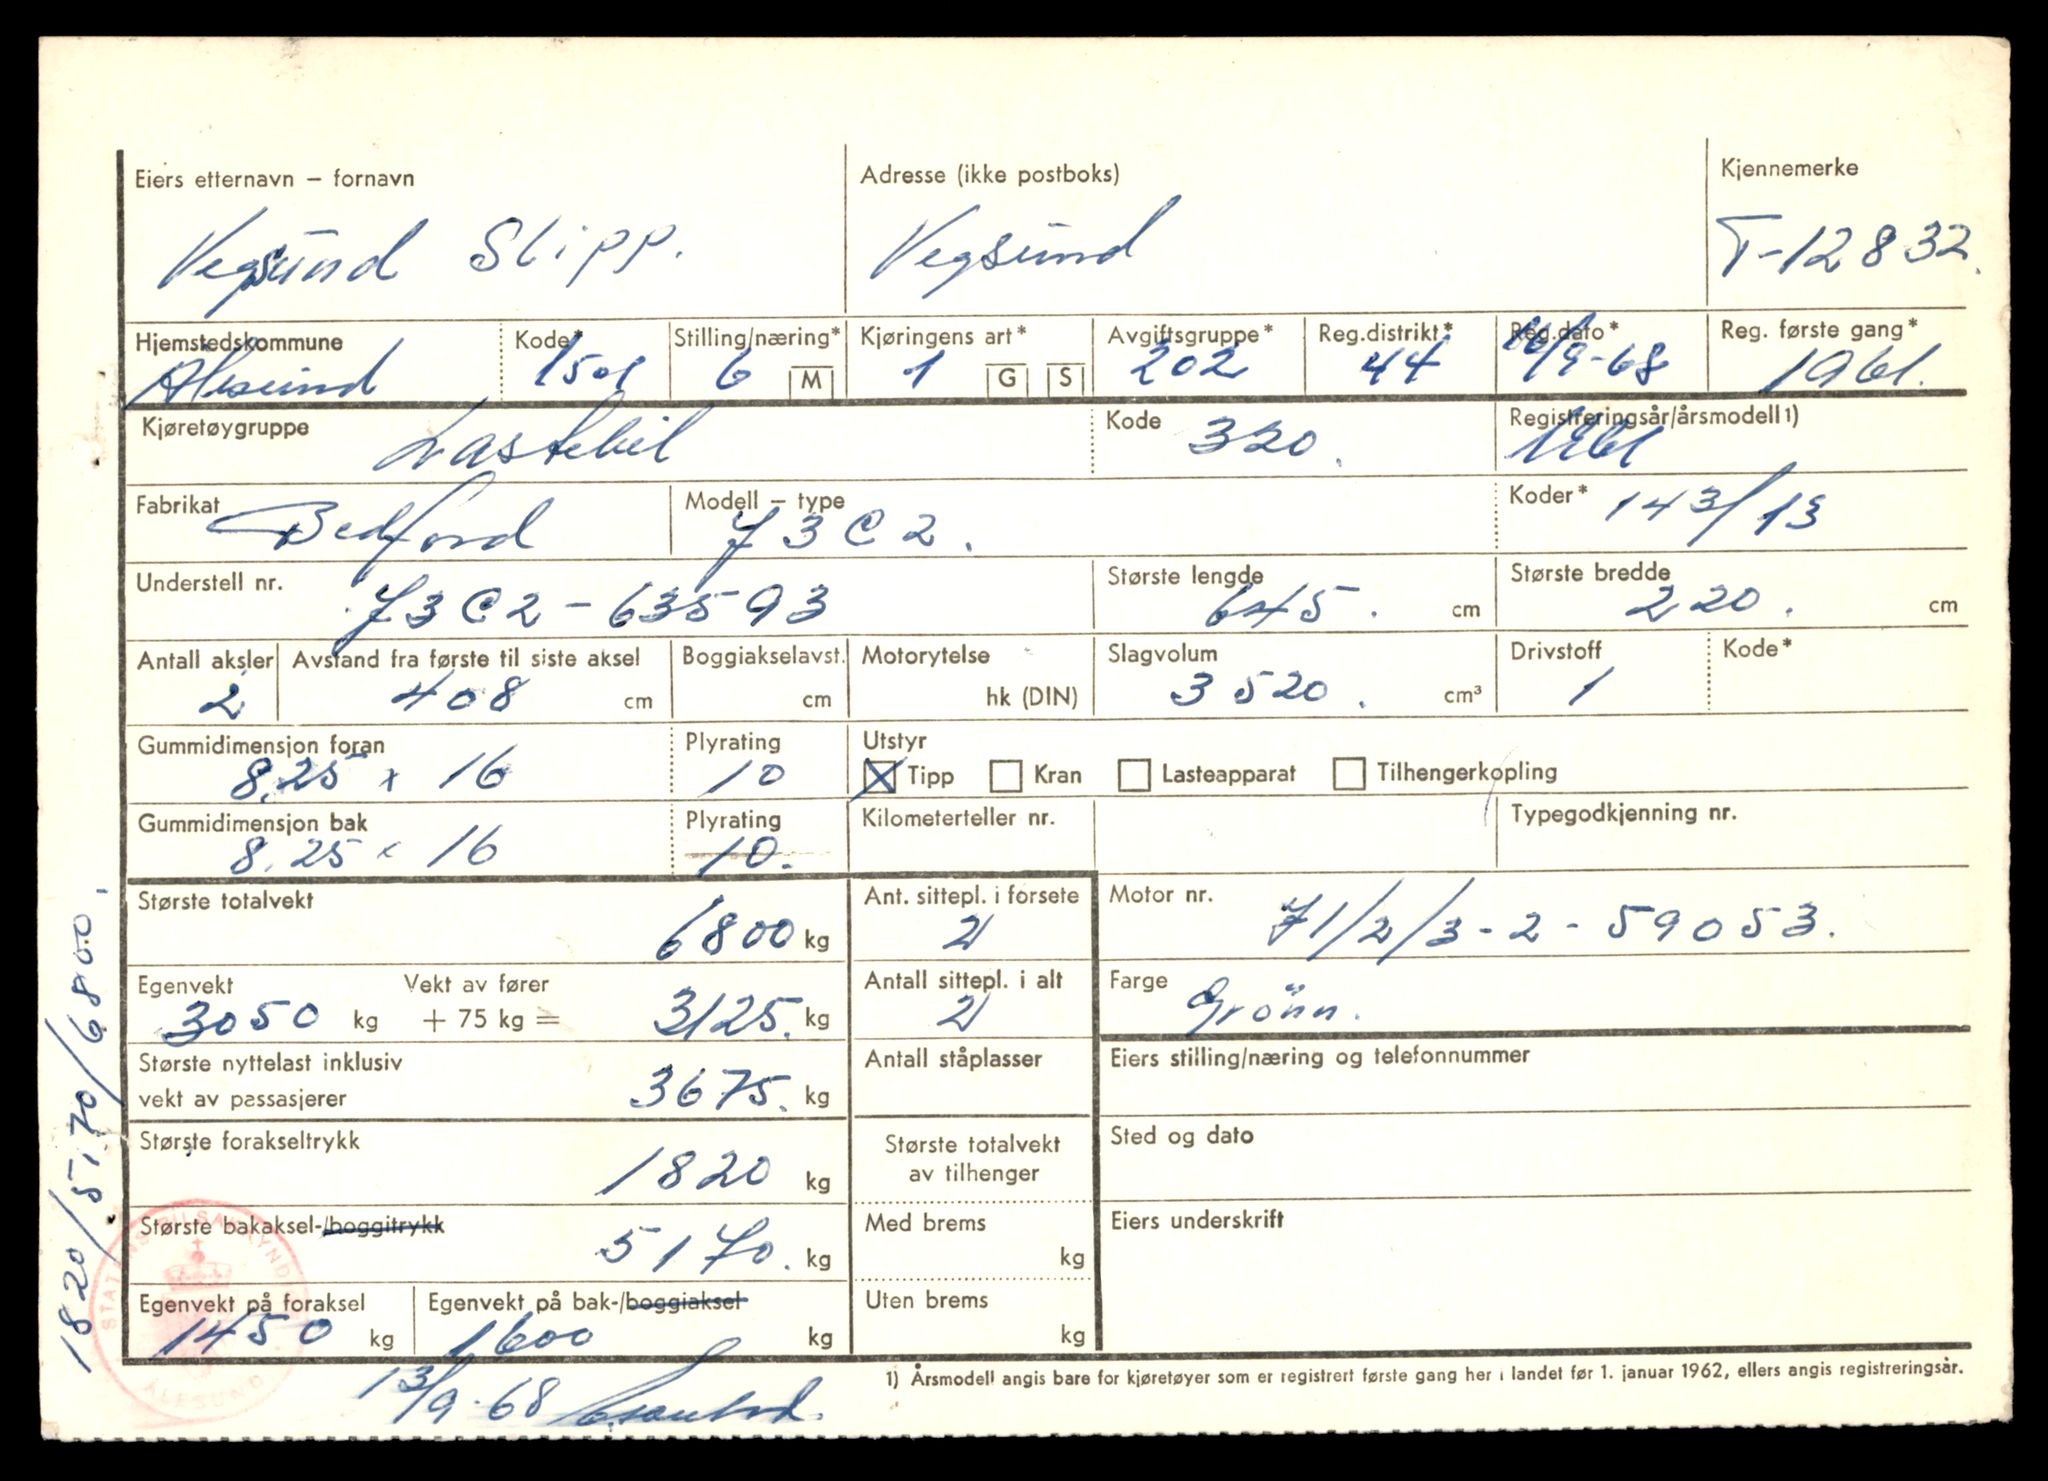 Eiers etternavn – fornavn Adresse (ikke postboks) Kjennemerke
Vegsund Slipp. Vegsund T-12832.
Hjemstedskommune Kode* Stilling/næring* Kjøringens art* Avgiftsgruppe* Reg.distrikt* Reg.dato* Reg. første gang*
Ålesund 1501 6 M 1 G S 202 44 /9-68 1961.
Kjøretøygruppe Lastebil Kode 320. Registreringsår/årsmodell1)
1961
Fabrikat Bedford Modell – type J3C2. Koder* 143/13
Understell nr. J3C2-63593 Største lengde 645. cm Største bredde 220. cm
Antall aksler Avstand fra første til siste aksel Boggiakselavst. Motorytelse Slagvolum Drivstoff Kode*
2 408 cm cm hk (DIN) 3520. cm³ 1
Gummidimensjon foran Plyrating Utstyr
8.25 x 16 10 Tipp Kran Lasteapparat Tilhengerkopling
Gummidimensjon bak Plyrating Kilometerteller nr. Typegodkjenning nr.
8.25 x 16 10.
Største totalvekt 6800 kg Ant. sittepl. i forsete 2 Motor nr. J1/2/3-2-59053.
Egenvekt Vekt av fører Antall sittepl. i alt Farge
3050 kg + 75 kg = 3125. kg 2 Grönn.
Største nyttelast inklusiv Antall ståplasser Eiers stilling/næring og telefonnummer
vekt av passasjerer 3675. kg
Største forakseltrykk 1820 kg Største totalvekt Sted og dato
av tilhenger
Største bakaksel-/boggitrykk 5170. kg Med brems kg Eiers underskrift
Egenvekt på foraksel Egenvekt på bak-/boggiaksel Uten brems
1450 kg 1600 kg kg
1) Årsmodell angis bare for kjøretøyer som er registrert første gang her i landet før 1. januar 1962, ellers angis registreringsår.
13/9-68
1820/5170/6800.
STATENS BILSAKKYNDIGE
ÅLESUND